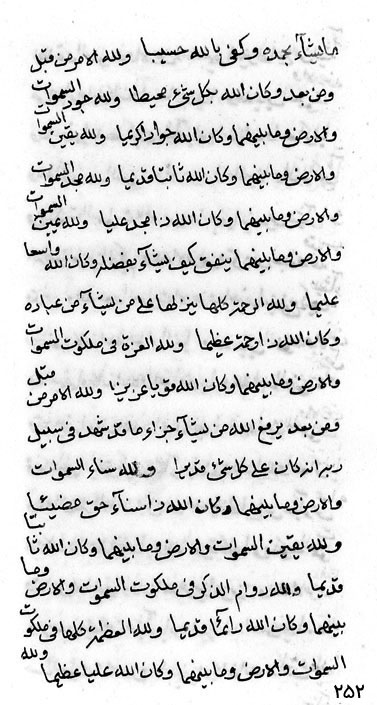 ما يشآء بحمده وكفى بالله حسيبا ولله الامر من قبل
ومن بعد وكان الله بكل شئ محيطا ولله جود السموات
والارض وما بينهما وكان الله جوادا كريما ولله يقين السموات
والارض وما بينهما وكان الله ثابتا قديما ولله مجد السموات
والارض وما بينهما وكان الله ذا مجد عليا ولله يمين السموات
والارض وما بينهما ينفق كيف يشآء بفضله وكان الله واسعا
عليما ولله الرحمة كلها ينزلها على من يشآء من عباده
وكان الله ذا رحمة عظيما ولله العزة في ملكوت السموات
والارض وما بينهما وكان الله قويا عزيزا ولله الامر من قبل
ومن بعد يرفع الله من يشآء جزاء ما قد شهد في سبيل
ربه انه كان على كل شئ قديرا ولله سناء السموات
والارض وما بينهما وكان الله ذا سنآء حق مضيئا
ولله يقين السموات والارض وما بينهما وكان الله ثابتا
قديما ولله دوام الذكر في ملكوت السموات والارض وما
بينهما وكان الله دائما قديما ولله العظمة كلها في ملكوت
السموات والارض وما بينهما وكان الله عليا عظيما ولله
٢٥٢